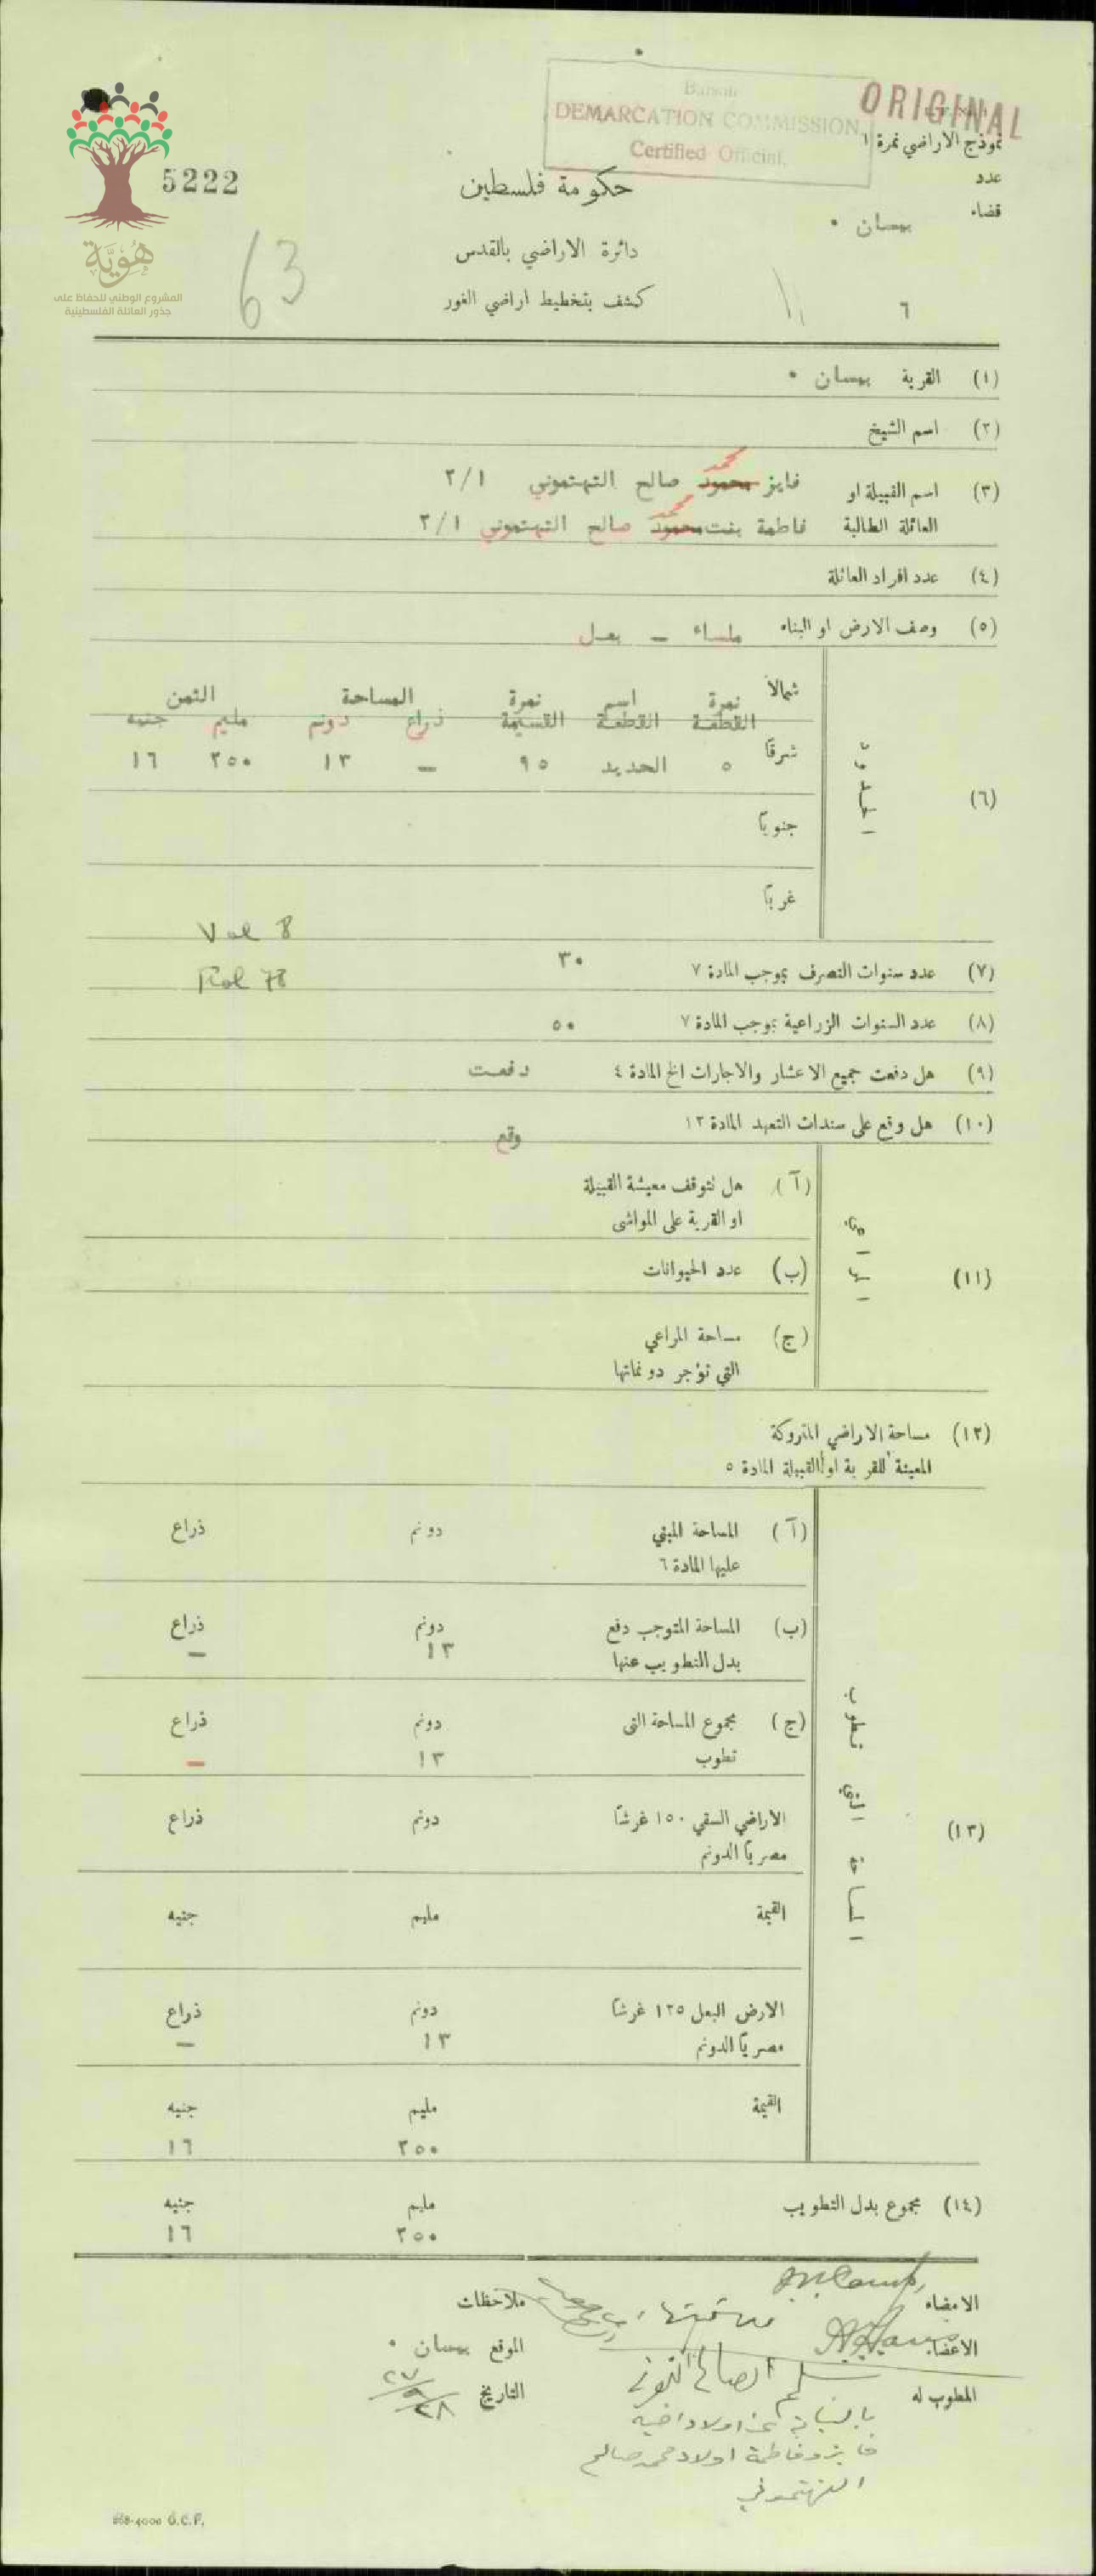 Baisan
DEMARCATION COMMISSION
Certified Official.
ORIGINAL
نموذج الاراضي نمرة ١
عدد
قضاء بيسان .
5222
حكومة فلسطين
دائرة الاراضي بالقدس
كشف بتخطيط اراضي الغور
63
٦
هُويَّة
المشروع الوطني للحفاظ على
جذور العائلة الفلسطينية
(١) القرية بيسان .
(٢) اسم الشيخ
محمد
(٣) اسم القبيلة او فايز محمود صالح التهتموني ٢/١
محمد
العائلة الطالبة فاطمة بنت محمود صالح التهتموني ٢/١
(٤) عدد افراد العائلة
(٥) وصف الارض او البناء ملساء – بعل
(٦) الحدود
شمالاً نمرة القطعة اسم القطعة نمرة القسيمة المساحة الثمن
ذراع دونم مليم جنيه
شرقاً ٥ الحديد ٩٥ – ١٣ ٢٥٠ ١٦
جنوباً
غرباً
Vol 8
Fol 78
(٧) عدد سنوات التصرف بموجب المادة ٧ ٣٠
(٨) عدد السنوات الزراعية بموجب المادة ٧ ٥٠
(٩) هل دفعت جميع الاعشار والاجارات الخ المادة ٤ دفعت
(١٠) هل وقع على سندات التعهد المادة ١٣ وقع
(١١) المراعي
(آ) هل تتوقف معيشة القبيلة
او القرية على المواشي
(ب) عدد الحيوانات
(ج) مساحة المراعي
التي تؤجر دونماتها
(١٢) مساحة الاراضي المتروكة
المعينة للقرية او القبيلة المادة ٥
(١٣) المساحة التي تطوب
(آ) المساحة المبني دونم ذراع
عليها المادة ٦
(ب) المساحة المتوجب دفع دونم ذراع
بدل التطويب عنها ١٣ –
(ج) مجموع المساحة التي دونم ذراع
تطوب ١٣ –
الاراضي السقي ١٥٠ غرشاً دونم ذراع
مصرياً الدونم
القيمة مليم جنيه
الارض البعل ١٢٥ غرشاً دونم ذراع
مصرياً الدونم ١٣ –
القيمة مليم جنيه
٢٥٠ ١٦
(١٤) مجموع بدل التطويب مليم جنيه
٢٥٠ ١٦
الامضاء
ملاحظات
الاعضاء
الموقع بيسان .
المطوب له
التاريخ ٢٧/٩/٢٨
بالنيابة عن اولاد اخيه
فايز وفاطمة اولاد محمد صالح
التهتموني
868-4000 G.C.P.